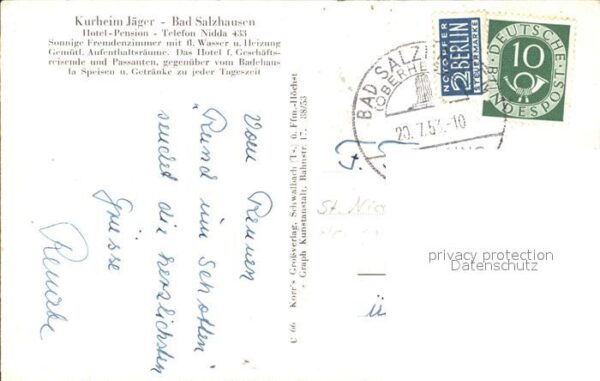 Kurheim Jäger - Bad Salzhausen
Hotel-Pension - Telefon Nidda 433
Sonnige Fremdenzimmer mit fl. Wasser u. Heizung
Gemütl. Aufenthaltsräume. Das Hotel f. Geschäfts-
reisende und Passanten, gegenüber vom Badehaus
Ia Speisen u. Getränke zu jeder Tageszeit
Vom Rennen
"Rund um Schotten"
sendet die herzlichsten
Grüsse
Renate
U 66 Korr's Großverlag, Schwalbach (Ts.) ü. Ffm.-Höchst
Graph Kunstanstalt, Bahnstr. 17. 38/53
NOTOPFER
2 BERLIN
STEUERMARKE
DEUTSCHE
BUNDESPOST
10
BAD SALZ
(OBERHE
20.7.53.-10
St. Nic
ü
privacy protection
Datenschutz